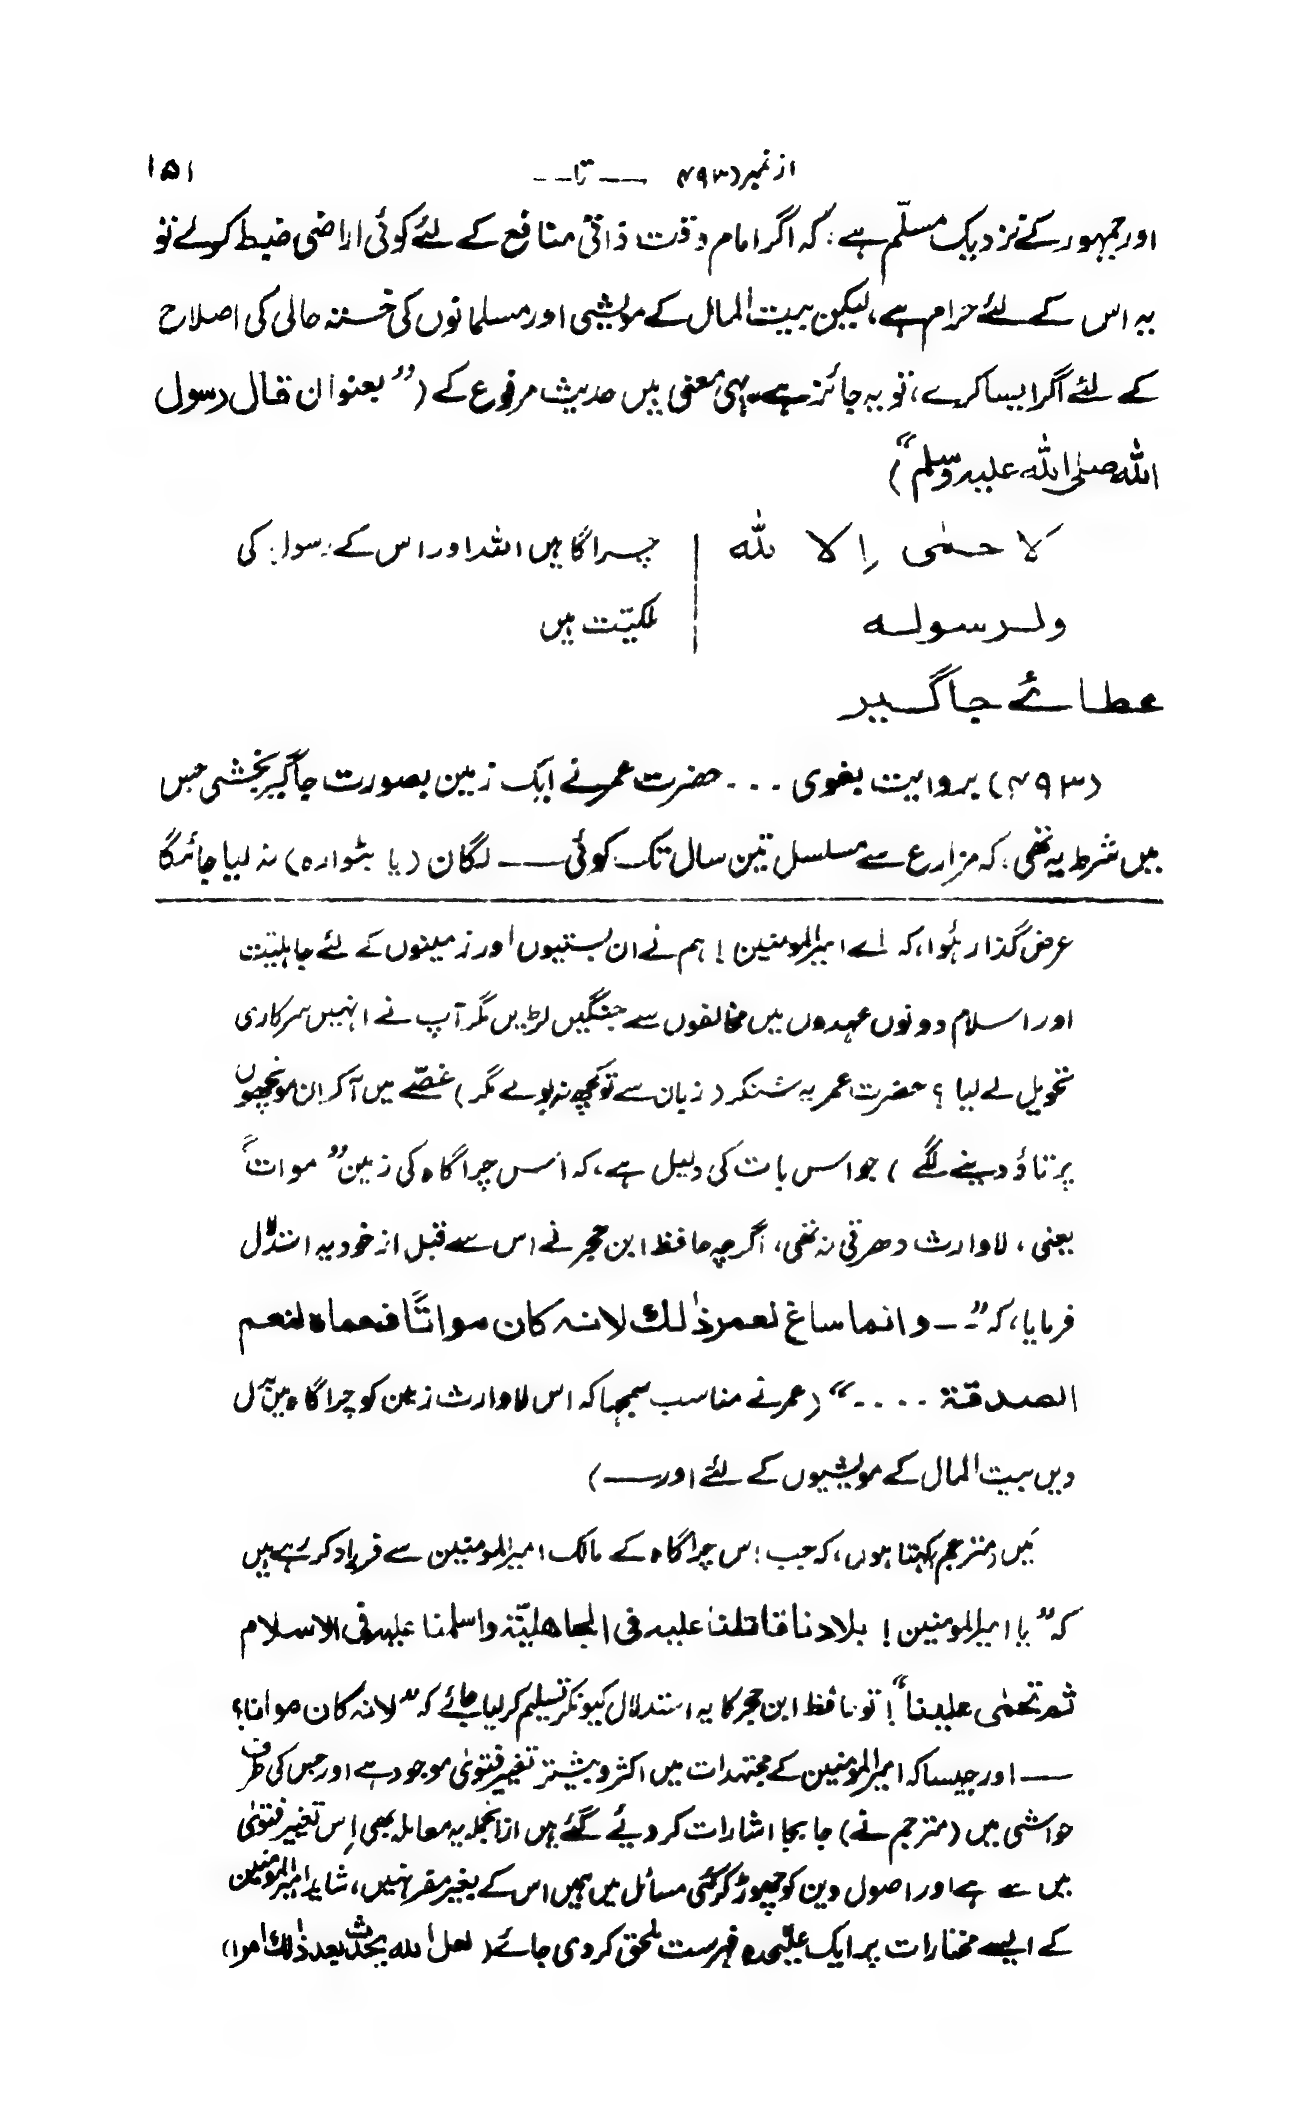 از نمبر (۴۹۳ ـــ تا ـــ ۱۵۱
اور جمہور کے نزدیک مسلّم ہے: کہ اگر امام وقت ذاتی منافع کے لئے کوئی اراضی ضبط کرلے تو
یہ اس کے لئے حرام ہے، لیکن بیت المال کے مویشی اور مسلمانوں کی خستہ حالی کی اصلاح
کے لئے اگر ایسا کرے، تو یہ جائز ہے۔ یہی معنی ہیں حدیث مرفوع کے (” بعنوان قال رسول
اللہ صلی اللہ علیہ وسلم“)
لا حمٰی اِلا للہ | چراگاہیں اللہ اور اس کے رسول کی
ولرسولہ | ملکیّت ہیں
عطائے جاگیر
(۴۹۳) بروایت بغوی ۔۔۔ حضرت عمر نے ایک زمین بصورت جاگیر بخشی جس
میں شرط یہ تھی: کہ مزارع سے مسلسل تین سال تک کوئی ـــ لگان (یا بٹوارہ) نہ لیا جائیگا
عرض گذار ہُوا، کہ اے امیرالمومنین! ہم نے ان بستیوں اور زمینوں کے لئے جاہلیّت
اور اسلام دونوں عہدوں میں مخالفوں سے جنگیں لڑیں مگر آپ نے انہیں سرکاری
تحویل لے لیا ؟ حضرت عمر یہ سُنکر (زبان سے تو کچھ نہ بولے مگر) غصّے میں آکر ان مونچھوں
پر تاؤ دینے لگے ) جو اس بات کی دلیل ہے، کہ اُس چراگاہ کی زمین ” مواتً
یعنی، لاوارث دھرتی نہ تھی، اگرچہ حافظ ابن حجر نے اس سے قبل از خود یہ استدلال
فرمایا، کہ ”۔۔ وانما ساغ لعمر ذٰلک لانہ کان مواتًا فحماہ لنعم
الصدقة ۔۔۔۔“ (عمر نے مناسب سمجھا کہ اس لاوارث زمین کو چراگاہ میں بدل
دیں بیت المال کے مویشیوں کے لئے اور ـــ)
مَیں (مترجم) کہتا ہوں، کہ جب اس چراگاہ کے مالک امیرالمومنین سے فریاد کر رہے ہیں
کہ ” یا امیرالمومنین! بلادنا قاتلنا علیہ فی الجاھلیّة واسلمنا علیہ فی الاسلام
ثم تحمٰی علینا“! تو حافظ ابن حجر کا یہ استدلال کیونکر تسلیم کرلیا جائے کہ ” لانہ کان مواتا؟
ـــ اور جیسا کہ امیرالمؤمنین کے مجتہدات میں اکثر و بیشتر تغییر فتویٰ موجود ہے اور جس کی طرف
حواشی میں (مترجم نے) جا بجا اشارات کر دیئے گئے ہیں ازانجملہ یہ معاملہ بھی اِس تغییر فتویٰ
میں سے ہے اور اصول دین کو چھوڑ کر کئی مسائل میں ہمیں اس کے بغیر مفر نہیں، شاید امیرالمؤمنین
کے ایسے مختارات پر ایک علیٰحدہ فہرست ملحق کردی جائے (لعل اللہ یحدث بعد ذٰلک امرا)